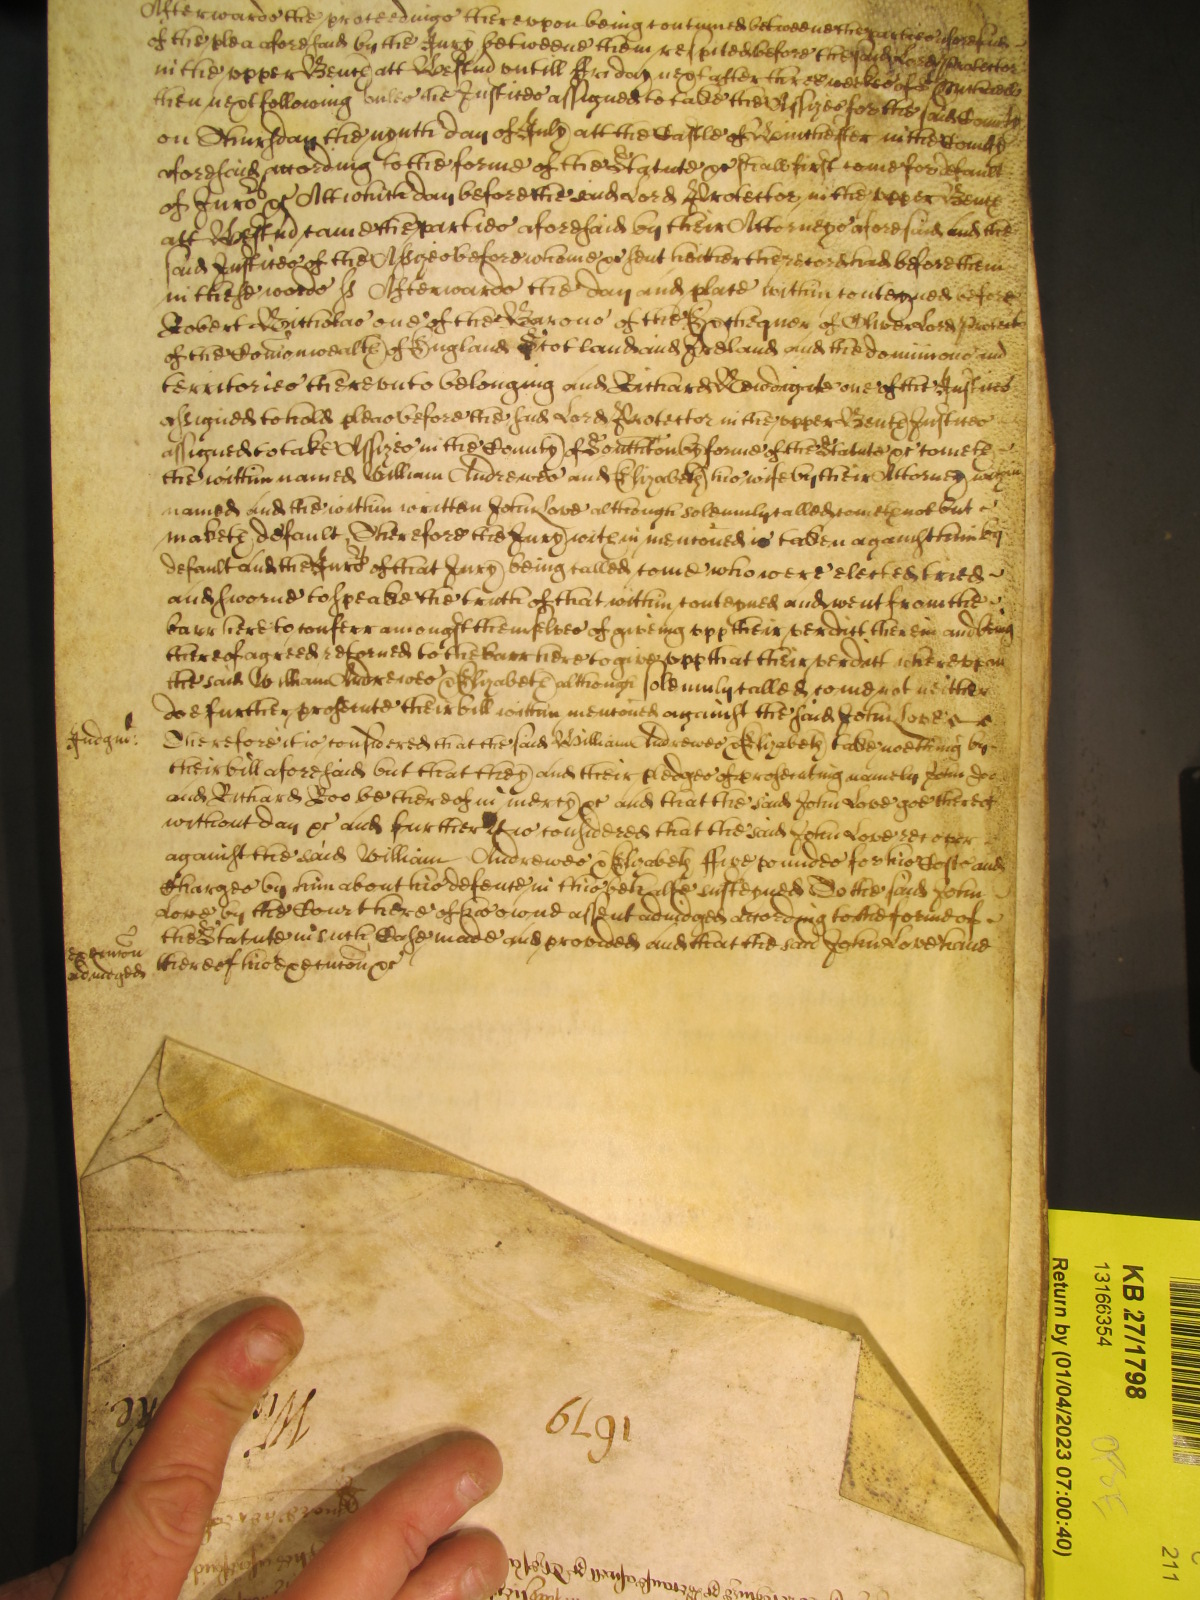 Afterwards the proceedings thereupon being continued betweene the parties aforesaid
of the plea aforesaid by the Jury betweene them respited before the said Lord Protector
in the upper Bench att Westmr untill Friday next after three weekes of
then next following unles the Justices assigned to take the Assizes for the said County
on Thursday the nynth day of July att the Castle of Winchester in the County
aforesaid according to the forme of the Statute &c shall first come for default
of Juro's &c Att which day before the said Lord Protector in the upper Bench
att Westmr came the parties aforesaid by their Attorneys aforesaid and the
said Justices of the Assizes before whome &c sent hither there record had before them
in these words ss Afterwards the day and place within conteyned before
Robert Nicholas one of the Barons of the Exchequer of Oliver Lord Protector
of the Comonwealth of England Scotland and Ireland and the dominions and
territories thereunto belonging and Richard Newdigate one of the Justices
assigned to hold pleas before the said Lord Protector in the upper Bench Justices
assigned to take Assizes in the County of Southton by forme of the Statute &c cometh
the within named William Andrewes and Elizabeth his wife by their Attorney within
named and the within written John Love although solemnly called cometh not but
maketh default Therefore the Jury within mencioned is taken against him by
default and the Juro's of that Jury being called come who were elected tried
and sworne to speake the truth of that within conteyned and went from the
barr here to conferr amongst themselves of giveing upp their verdict therein and being
thereof agreed returned to the barr here to give upp that their verdict whereupon
the said William Andrewes & Elizabeth although solemnly called come not neither
doe further prosecute their bill within mencioned against the said John Love
Judgmt: Therefore it is considered that the said William Andrewes & Elizabeth take nothing by
their bill aforesaid but that they and their pledges of prosecuting namely John Doe
and Richard Roo be thereof in mercy &c and that the said John Love goe thereof
without day &c and further it is considered that the said John Love recover
against the said William Andrewes & Elizabeth ffive poundes for his Costs and
Charges by him about his defence in this behalfe susteyned To the said John
Love by the Court here of his owne assent adiudged according to the forme of
the Statute in such Case made and provided and that the said John Love have
execucon
adiudged
thereof his execucon &c
1679
KB 27/1798
13166354
Return by (01/04/2023 07:00:40)
211